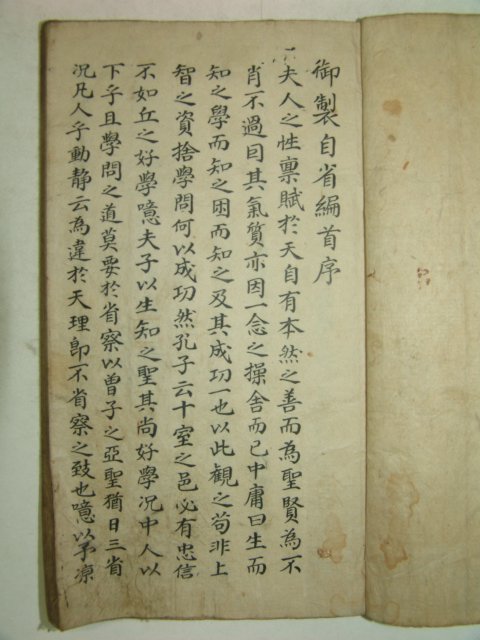 御製自省編首序
夫人之性禀賦於天自有本然之善而為聖賢為不
肖不過曰其氣質亦因一念之操舍而已中庸曰生而
知之學而知之困而知之及其成功一也以此觀之苟非上
智之資捨學問何以成功然孔子云十室之邑必有忠信
不如丘之好學噫夫子以生知之聖其尚好學況中人以
下乎且學問之道莫要於省察以曾子之亞聖猶日三省
況凡人乎動靜云為違於天理即不省察之致也噫以予涼